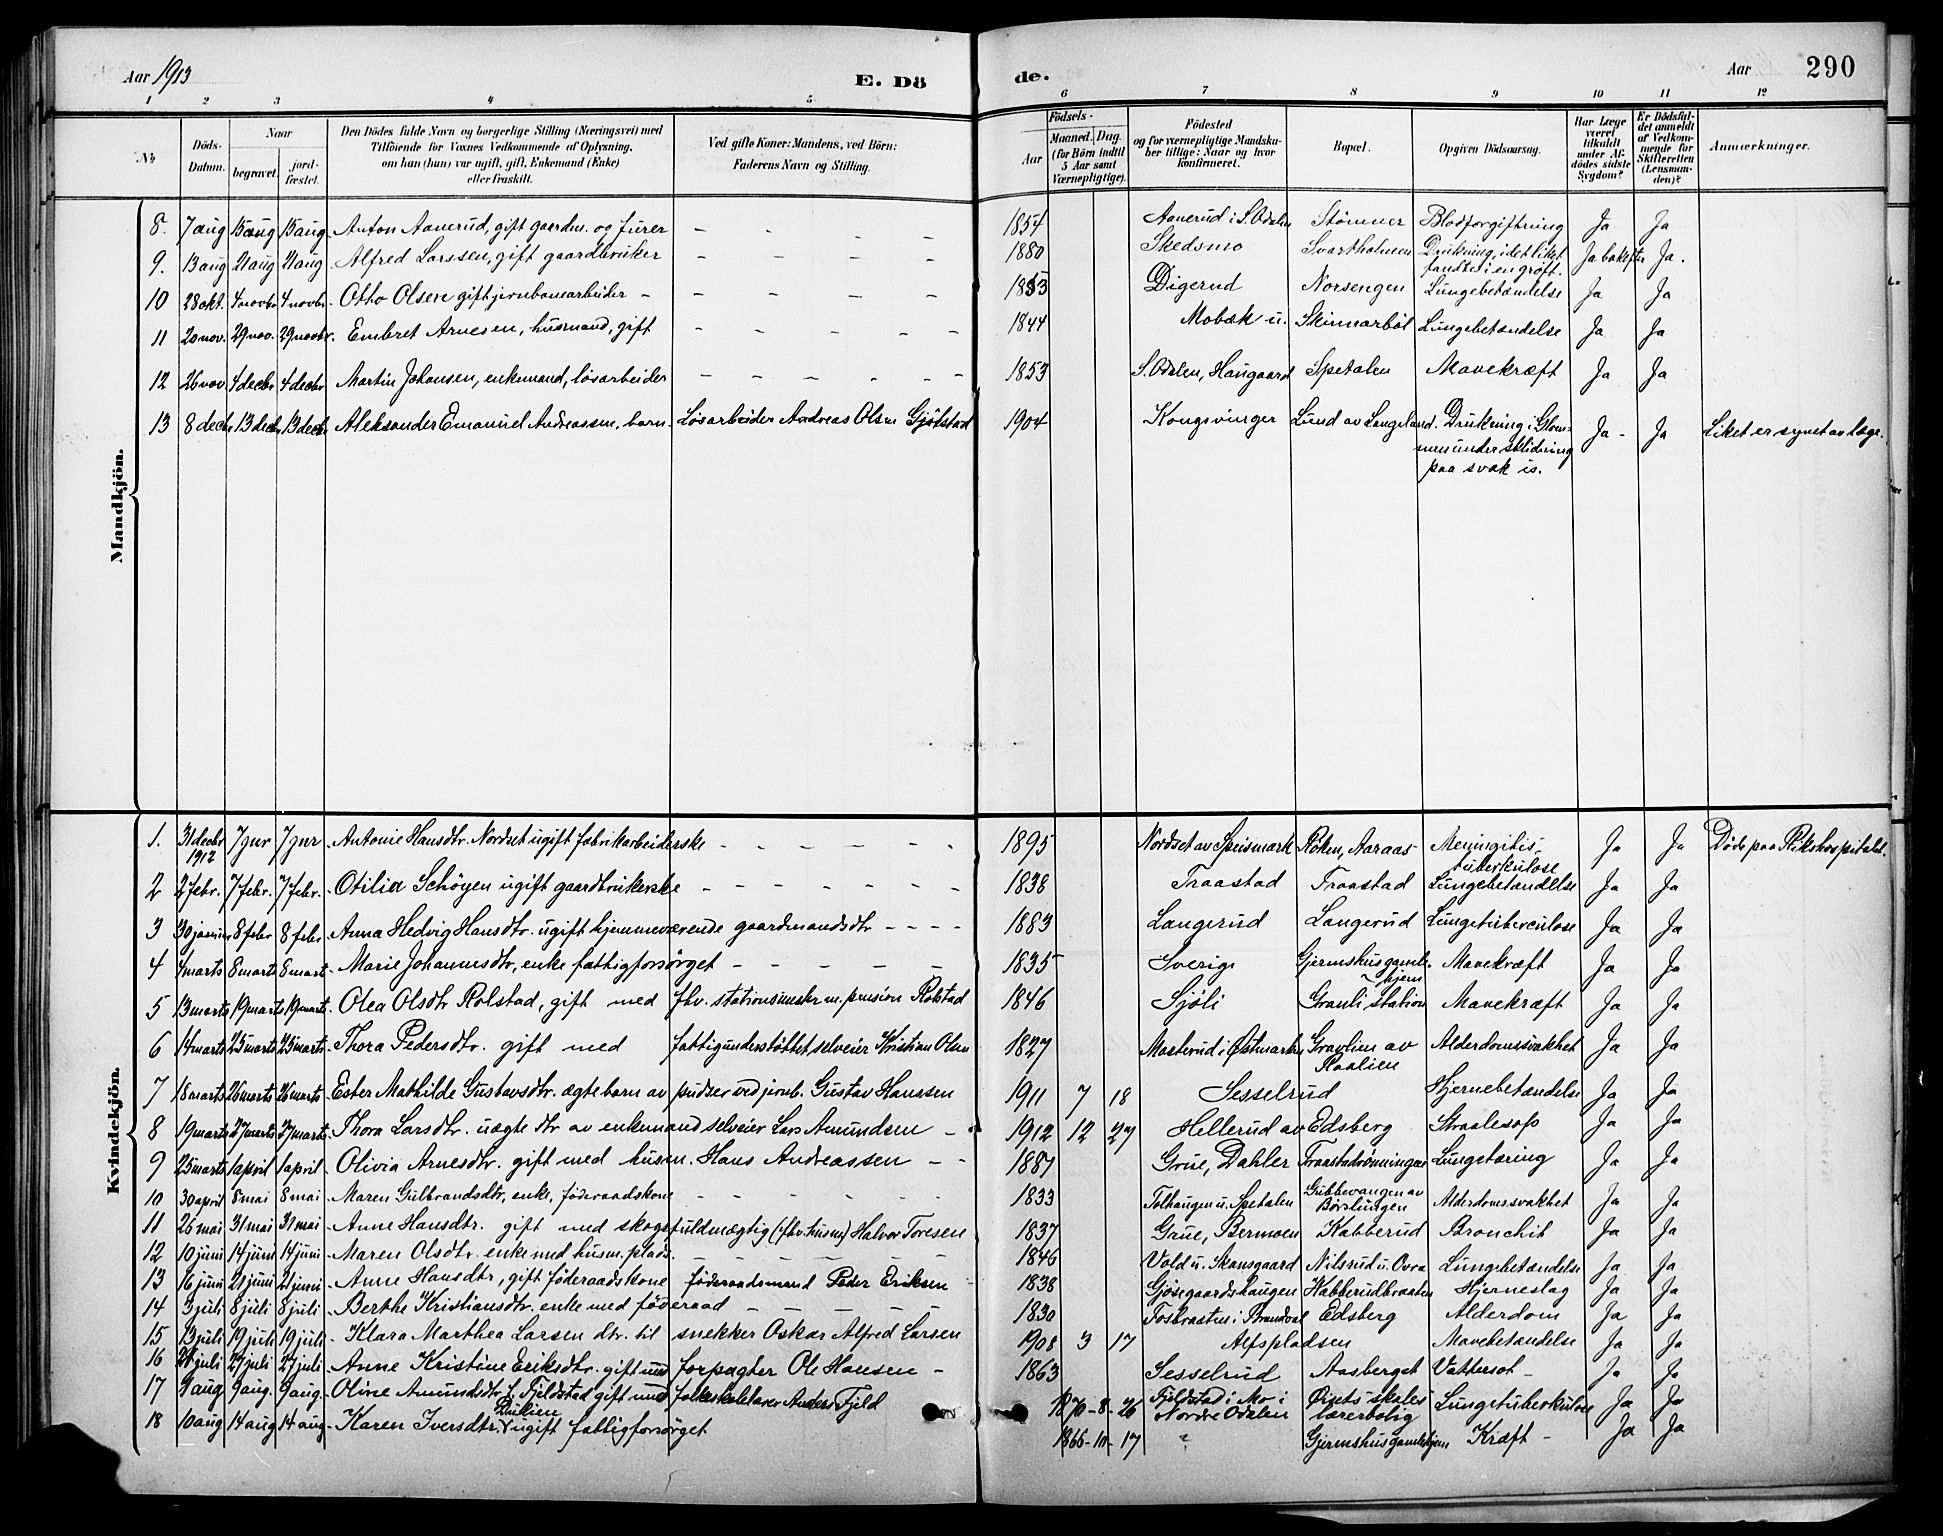 Aar 1913
E. Dö
de.
Aar
290
1 2 3 4 5 6 7 8 9 10 11 12
No
Döds-Datum.
Naar
begravet.
jord-fæstet.
Den Dödes fulde Navn og borgerlige Stilling (Næringsvei) med
Tilföiende for Voxnes Vedkommende af Oplysning,
om han (hun) var ugift, gift, Enkemand (Enke)
eller fraskilt.
Ved gifte Koner: Mandens, ved Börn:
Faderens Navn og Stilling.
Födsels-
Aar
Maaned. Dag.
(for Börn indtil
5 Aar samt
Værnepligtige).
Födested
og for værnepligtige Mandska-
ber tillige: Naar og hvor
konfirmeret.
Bopæl.
Opgiven Dödsaarsag.
Har Læge
været
tilkaldt
under Af-
dödes sidste
Sygdom?
Er Dödsfal-
det anmeldt
af Vedkom-
mende for
Skifteretten
(Lensman-
den)?
Anmærkninger.
Mandkjön.
8. 7 aug 15 aug 15 aug Anton Aanerud, gift gaardm. og furer – – – – 1854 Aanerud i S. Odalen Stømner Blodforgiftning Ja Ja
9. 13 aug 21 aug 21 aug Alfred Larssen, gift gaardbruker – – – – 1880 Skedsmo Svartholmen Drukning, idet liket Ja bakefter Ja.
fandtes i en grøft.
10 28 okt. 4 novbr 4 novbr Otto Olsen gift jernbanearbeider – – – – – 1853 Digerud Norsengen Lungebetændelse Ja Ja
11 20 nov. 29 nov. 29 novbr. Embret Arnesen, husmand, gift – – – – – 1844 Mobæk u. Skinnarbøl Lungebetændelse Ja Ja
12 26 nov 4 decbr 4 decbr Martin Johansen, enkemand, løsarbeider – – – – – – 1853 S. Odalen, Haugaard Spetalen Mavekræft Ja Ja
13 8 decbr 13 decbr 13 decbr Aleksander Emanuel Andreassen, barn Løsarbeider Andreas Olsen Gjølstad 1904 Kongsvinger Lund av Langeland. Drukning i Glom- Ja – Ja Liket er synet av læge.
men under sklidning
paa svak is.
Kvindekjön.
1. 31 decbr 7 jnr 7 jnr Antonie Hansdtr. Nordset ugift fabrikarbeiderske – – – – – 1895 Nordset av Speismark Roken, Aaraas- Meningitis- Ja Ja Døde paa Rikshospitalet.
1912
tuberkulose
2 2 febr. 7 febr. 7 febr. Otilia Schøyen ugift gaardbrukerske – – – – – – – 1838 Traastad Traastad Lungebetændelse Ja Ja
3 30 januar 8 febr 8 febr Anna Hedvig Hansdtr. ugift hjemmeværende gaardmandsdtr – – – – 1883 Langerud Langerud Lungetuberculose Ja Ja
4 4 marts 8 marts 8 mart Marie Johannesdtr, enke fattigforsørget – – – – – 1835 Sverige Gjermshus gamle- Mavekræft Ja Ja
hjem
5 13 marts 19 marts 19 marts Olea Olsdtr Rolstad, gift med fhv. stationsmester m. pension Rolstad 1846 Sjøli Granli station Mavekræft Ja Ja
6 14 marts 25 marts 25 marts Thora Pedersdtr. gift med fattigunderstøttet selveier Kristian Olsen 1827 Masterud i Østmarken Gravlien av Alderdomssvakhet Ja Ja
Raalien
7 18 marts 26 marts 26 marts Ester Mathilde Gustavsdtr. ægte barn av pudser ved jernb. Gustav Hanssen 1911 7 18 Sesselrud Hjernebetændelse Ja Ja
8 19 marts 27 marts 27 marts Thora Larsdtr. uægte dtr av enkemand selveier Lars Amundsen – – 1912 12 27 Hellerud av Edsberg Straalesop Ja Ja
9 25 marts 1 april 1 april Olivia Arnesdtr. gift med husm. Hans Andreassen – – 1887 Grue, Dahler Traastadrønningen Lungetæring Ja Ja
10 30 april 8 mai 8 mai Maren Gulbrandsdtr, enke, føderaadskone – – – – – 1833 Tolhaugen u. Spetalen Gubbevangen av Alderdomssvakhet Ja Ja
Børslungen
11 26 mai 31 mai 31 mai Anne Hansdtr. gift med skogsfuldmægtig (fhv. husm) Halvor Toresen 1837 Grue, Bermoen Kabberud Bronchit Ja Ja
12 10 juni 14 juni 14 juni Maren Olsdtr. enke med husm. plads. – – – – – 1846 Vold u. Skansgaard Nilsrud u. Ovra Lungebetændelse Ja Ja
13 16 juni 21 juni 21 juni Anne Hansdtr, gift føderaadskone føderaadsmand Peder Eriksen – 1838 Gjøsegaardshaugen Kabberudbraaten Hjerneslag Ja Ja
14 3 juli 8 juli 8 juli Berthe Kristiansdtr. enke med føderaad – – – – – 1830 Fosbrasten i Brandval Edsberg Alderdom Ja Ja
15 13 juli 19 juli 19 juli Klara Marthea Larsen dtr. til snekker Oskar Alfred Larsen 1908 3 17 Alfspladsen Mavebetændelse Ja Ja
16 21 juli 27 juli 27 juli Anne Kristine Eriksdtr. gift med forpagter Ole Hansen – 1863 Sesselrud Aasberget Vattersot – Ja Ja
17 4 aug 9 aug. 9 aug. Oline Amundsdtr f. Fjeldstad gift med folkeskolelærer Anders Fjeld 1870 – 8 – 26 Fjeldstad i Mo i Øiets skoles Lungetuberkulose Ja Ja
Nordre Odalen lærerbolig
18 10 aug 14 aug 14 aug Karen Iversdtr. ugift fattigforsørget 1866 – 10 – 17 ? Gjermshus gamlehjem Kræft – Ja Ja